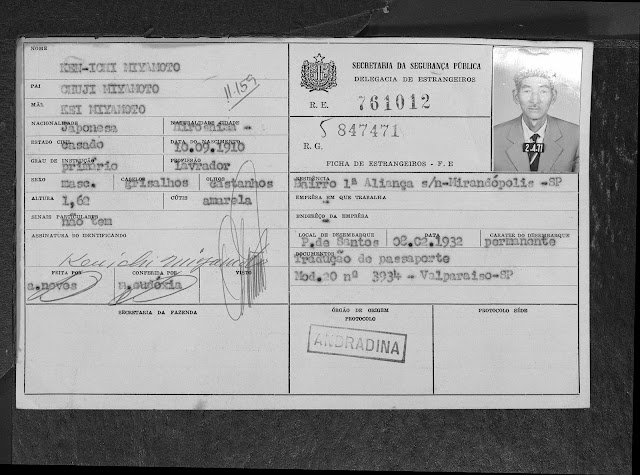 NOME
KEN-ICHI MIYAMOTO
PAI
CHUJI MIYAMOTO
MÃE
KEI MIYAMOTO
11.159
NACIONALIDADE
Japonesa
NATURALIDADE CIDADE
Hiroshima -
ESTADO CIVIL
Casado
DATA DO NASCIMENTO
10.09.1910
GRAU DE INSTRUÇÃO
primário
PROFISSÃO
lavrador
SEXO
masc.
CABELOS
grisalhos
OLHOS
castanhos
ALTURA
1,62
CÚTIS
amarela
SINAIS PARTICULARES
não tem
ASSINATURA DO IDENTIFICANDO
Kenichi Miyamoto
FEITA POR
a.neves
CONFERIDA POR
m.eudóxia
VISTO
SECRETARIA DA FAZENDA
SECRETARIA DA SEGURANÇA PÚBLICA
DELEGACIA DE ESTRANGEIROS
R. E. 761012
5 847471
R G.
FICHA DE ESTRANGEIROS - F. E
2.4.71
RESIDÊNCIA
Bairro 1ª Aliança s/n-Mirandópolis -SP
EMPRÊSA EM QUE TRABALHA
--
ENDERÊÇO DA EMPRÊSA
--
LOCAL DE DESEMBARQUE
P.de Santos
DATA
08.02.1932
CARATER DO DESEMBARQUE
permanente
DOCUMENTOS
Tradução de passaporte
Mod.20 nº 3934 - Valparaiso-SP
ÓRGÃO DE ORIGEM
PROTOCOLO
ANDRADINA
PROTOCOLO SÉDE